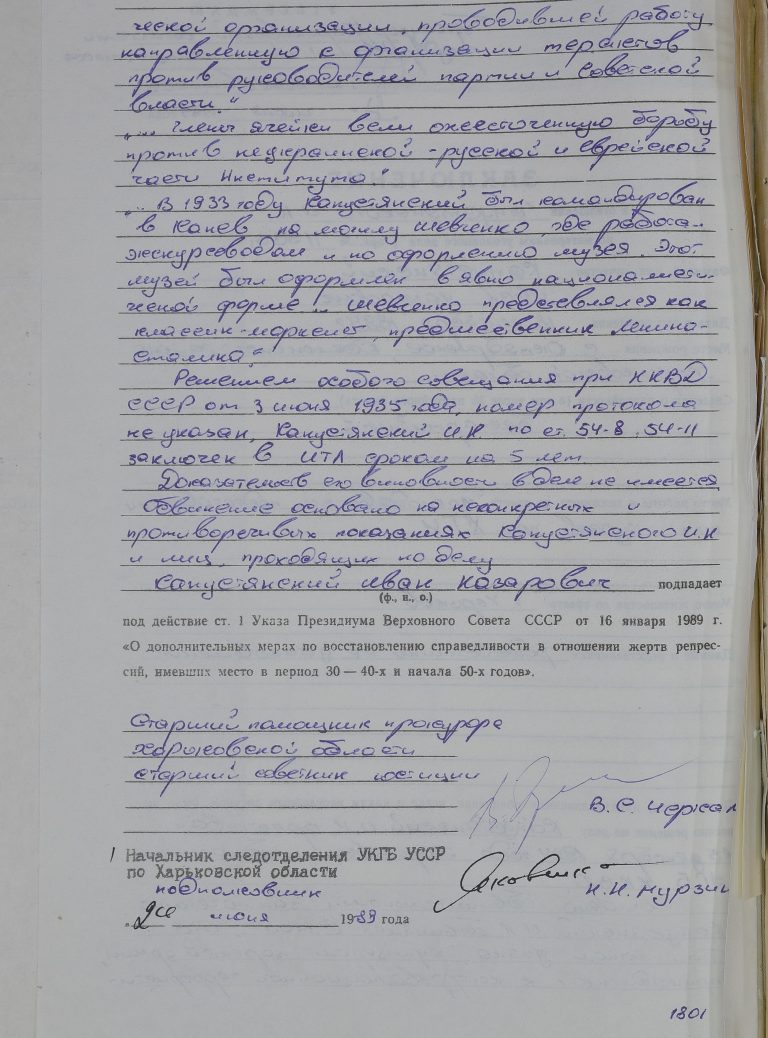 ческой организации, проводившей работу
направленную к организации терактов
против руководителей партии и Советской
власти."
"... Члены ячейки вели ожесточенную борьбу
против неукраинской - русской и еврейской
части Института."
"... В 1933 году Капустянский был командирован
в Канев, на могилу Шевченко, где работал
экскурсоводом и по оформлению музея. Этот
музей был оформлен в явно националисти-
ческой форме ... Шевченко представлялся как
классик-марксист, предшественник Ленина-
Сталина".
Решением особого совещания при НКВД
СССР от 3 июня 1935 года, номер протокола
не указан, Капустянский И.Н. по ст. 54-8, 54-11
заключен в ИТЛ сроком на 5 лет.
Доказательств его виновности в деле не имеется
Обвинение основано на неконкретных и
противоречивых показаниях Капустянского И.Н
и лиц, проходящих по делу
Капустянский Иван Назарович подпадает
(ф., и., о.)
под действие ст. 1 Указа Президиума Верховного Совета СССР от 16 января 1989 г.
«О дополнительных мерах по восстановлению справедливости в отношении жертв репрес-
сий, имевших место в период 30 — 40-х и начала 50-х годов».
Старший помощник прокурора
Харьковской области
старший советник юстиции
В.С.
Начальник следотделения УКГБ УССР
по Харьковской области
подполковник
Н.Н. Мурзин
" июня 1989 года
1801